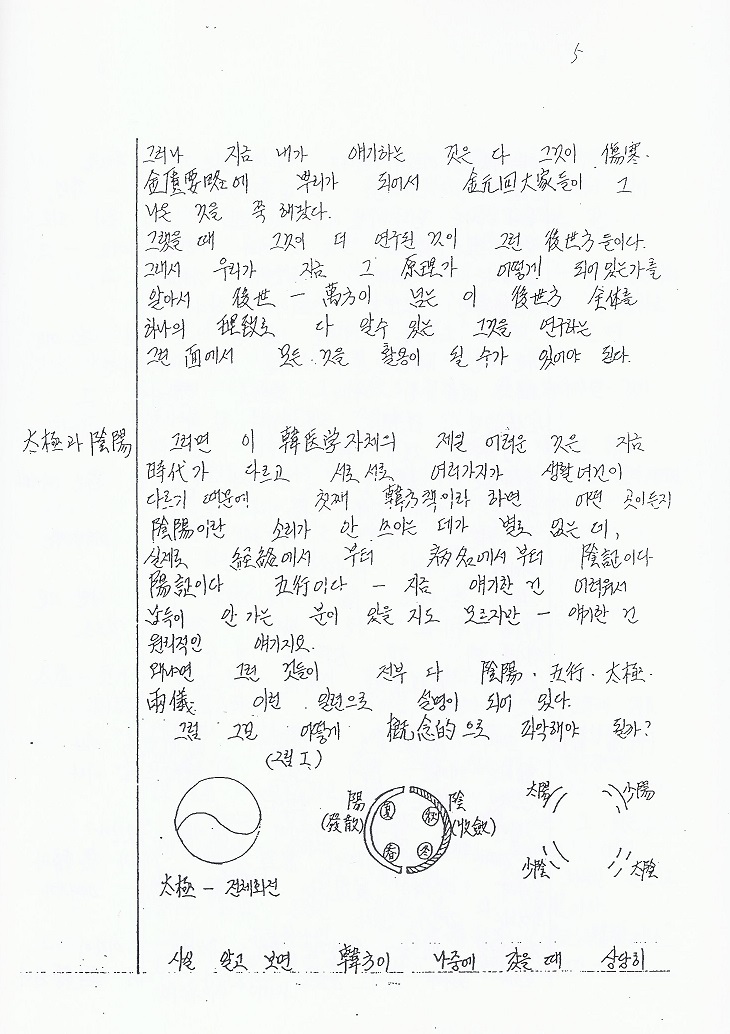 5
그러나 지금 내가 얘기하는 것은 다 그것이 傷寒·
金匱要略에 뿌리가 되어서 金元四大家들이 그
나온 것을 쭉 해놨다.
그랬을 때 그것이 더 연구된 것이 그런 後世方들이다.
그래서 우리가 지금 그 原理가 어떻게 되어있는가를
알아서 後世 - 萬方이 넘는 이 後世方 全体를
하나의 理致로 다 알수 있는 그것을 연구하는
그런 面에서 모든 것을 활용이 될 수가 있어야 된다.
太極과 陰陽
그러면 이 韓医学자체의 제일 어려운 것은 지금
時代가 다르고 서로 서로 여러가지가 생활여건이
다르기 때문에 첫째 韓方책이라 하면 어떤 곳이든지
陰陽이란 소리가 안 쓰이는 데가 별로 없는 데,
실제로 経絡에서 부터 病名에서 부터 陰証이다
陽証이다 五行이다 - 지금 얘기한 건 어려워서
납득이 안 가는 분이 있을 지도 모르지만 - 얘기한 건
원리적인 얘기지요.
왜냐면 그런 것들이 전부 다 陰陽·五行·太極·
兩儀 이런 일련으로 설명이 되어 있다.
그럼 그걸 어떻게 槪念的으로 파악해야 될까?
(그림 I.)
太極 - 전체회전
陽
(發散)
夏
秋
春
冬
陰
(收斂)
太陽
少陽
少陰
太陰
사실 알고 보면 韓方이 나중에 갔을 때 상당히